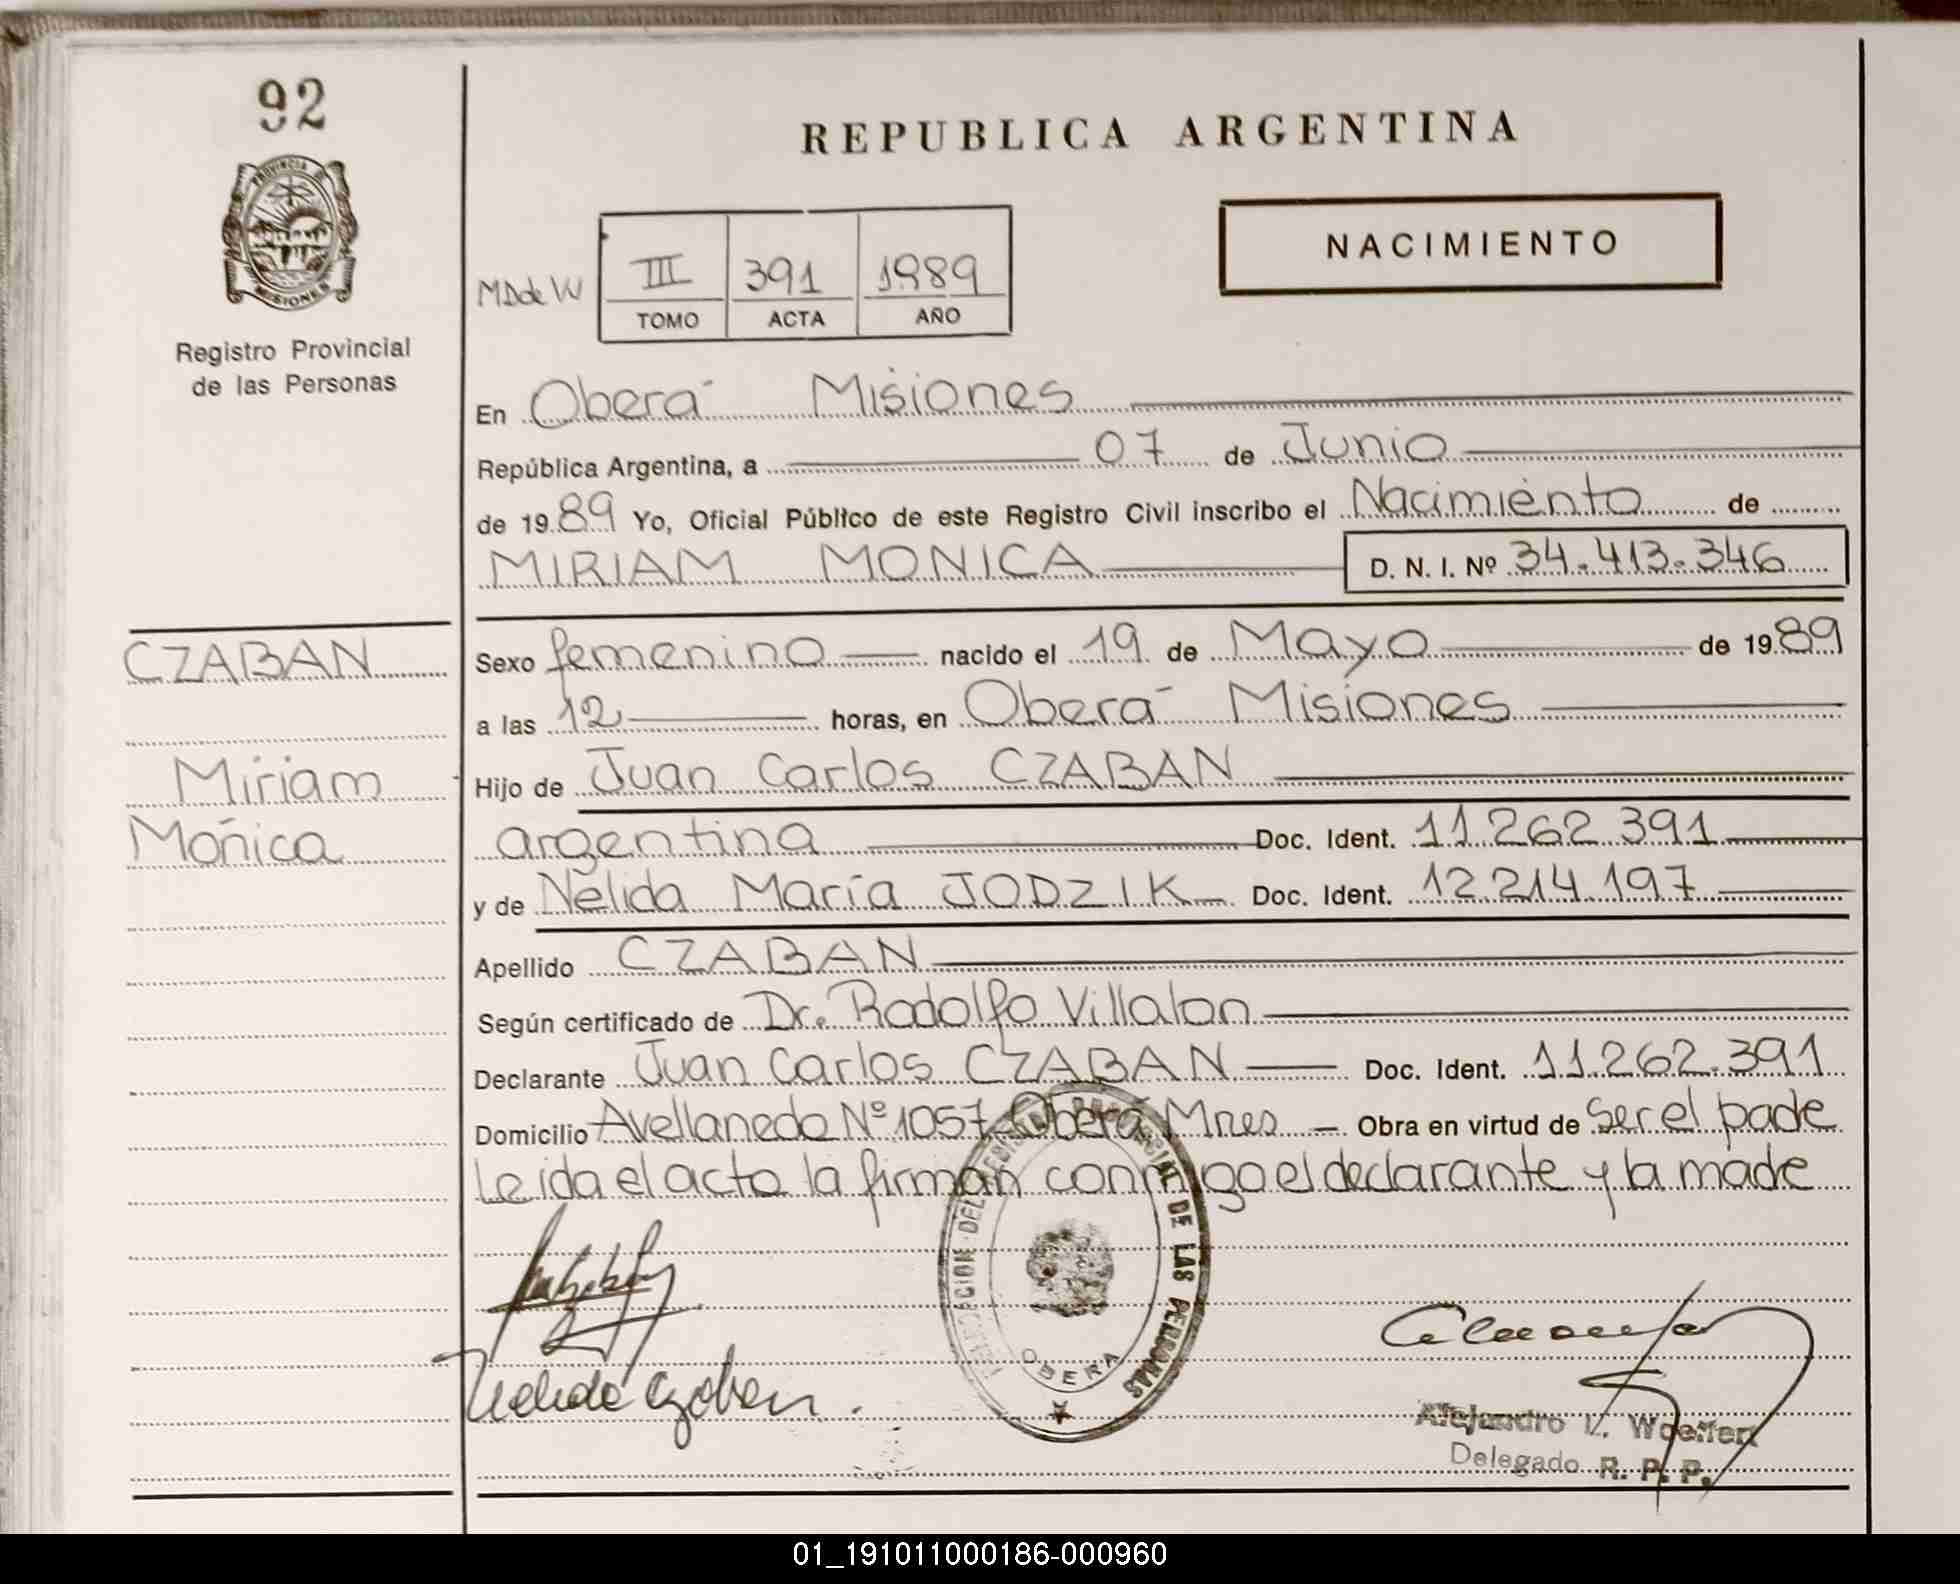 92
PROVINCIA DE
MISIONES
Registro Provincial
de las Personas
REPUBLICA ARGENTINA
NACIMIENTO
MD de W III 391 1989
TOMO ACTA AÑO
En Oberá Misiones
República Argentina, a 07 de Junio
de 1989 Yo, Oficial Público de este Registro Civil inscribo el Nacimiento de
MIRIAM MONICA D. N. I. Nº 34.413.346
CZABAN
Miriam
Mónica
Sexo femenino nacido el 19 de Mayo de 1989
a las 12 horas, en Oberá Misiones
Hijo de Juan Carlos CZABAN
argentina Doc. Ident. 11.262.391
y de Nélida María JODZIK Doc. Ident. 12.214.197
Apellido CZABAN
Según certificado de Dr. Rodolfo Villalon
Declarante Juan Carlos CZABAN Doc. Ident. 11.262.391
Domicilio Avellaneda Nº 1057 Oberá Mnes Obra en virtud de ser el padre
Leida el acta la firman conmigo el declarante y la madre
DE LAS PERSONAS
OBERA
Nelida Czaban.
Alejandro L. Woeffert
Delegado R. P. P.
01_191011000186-000960